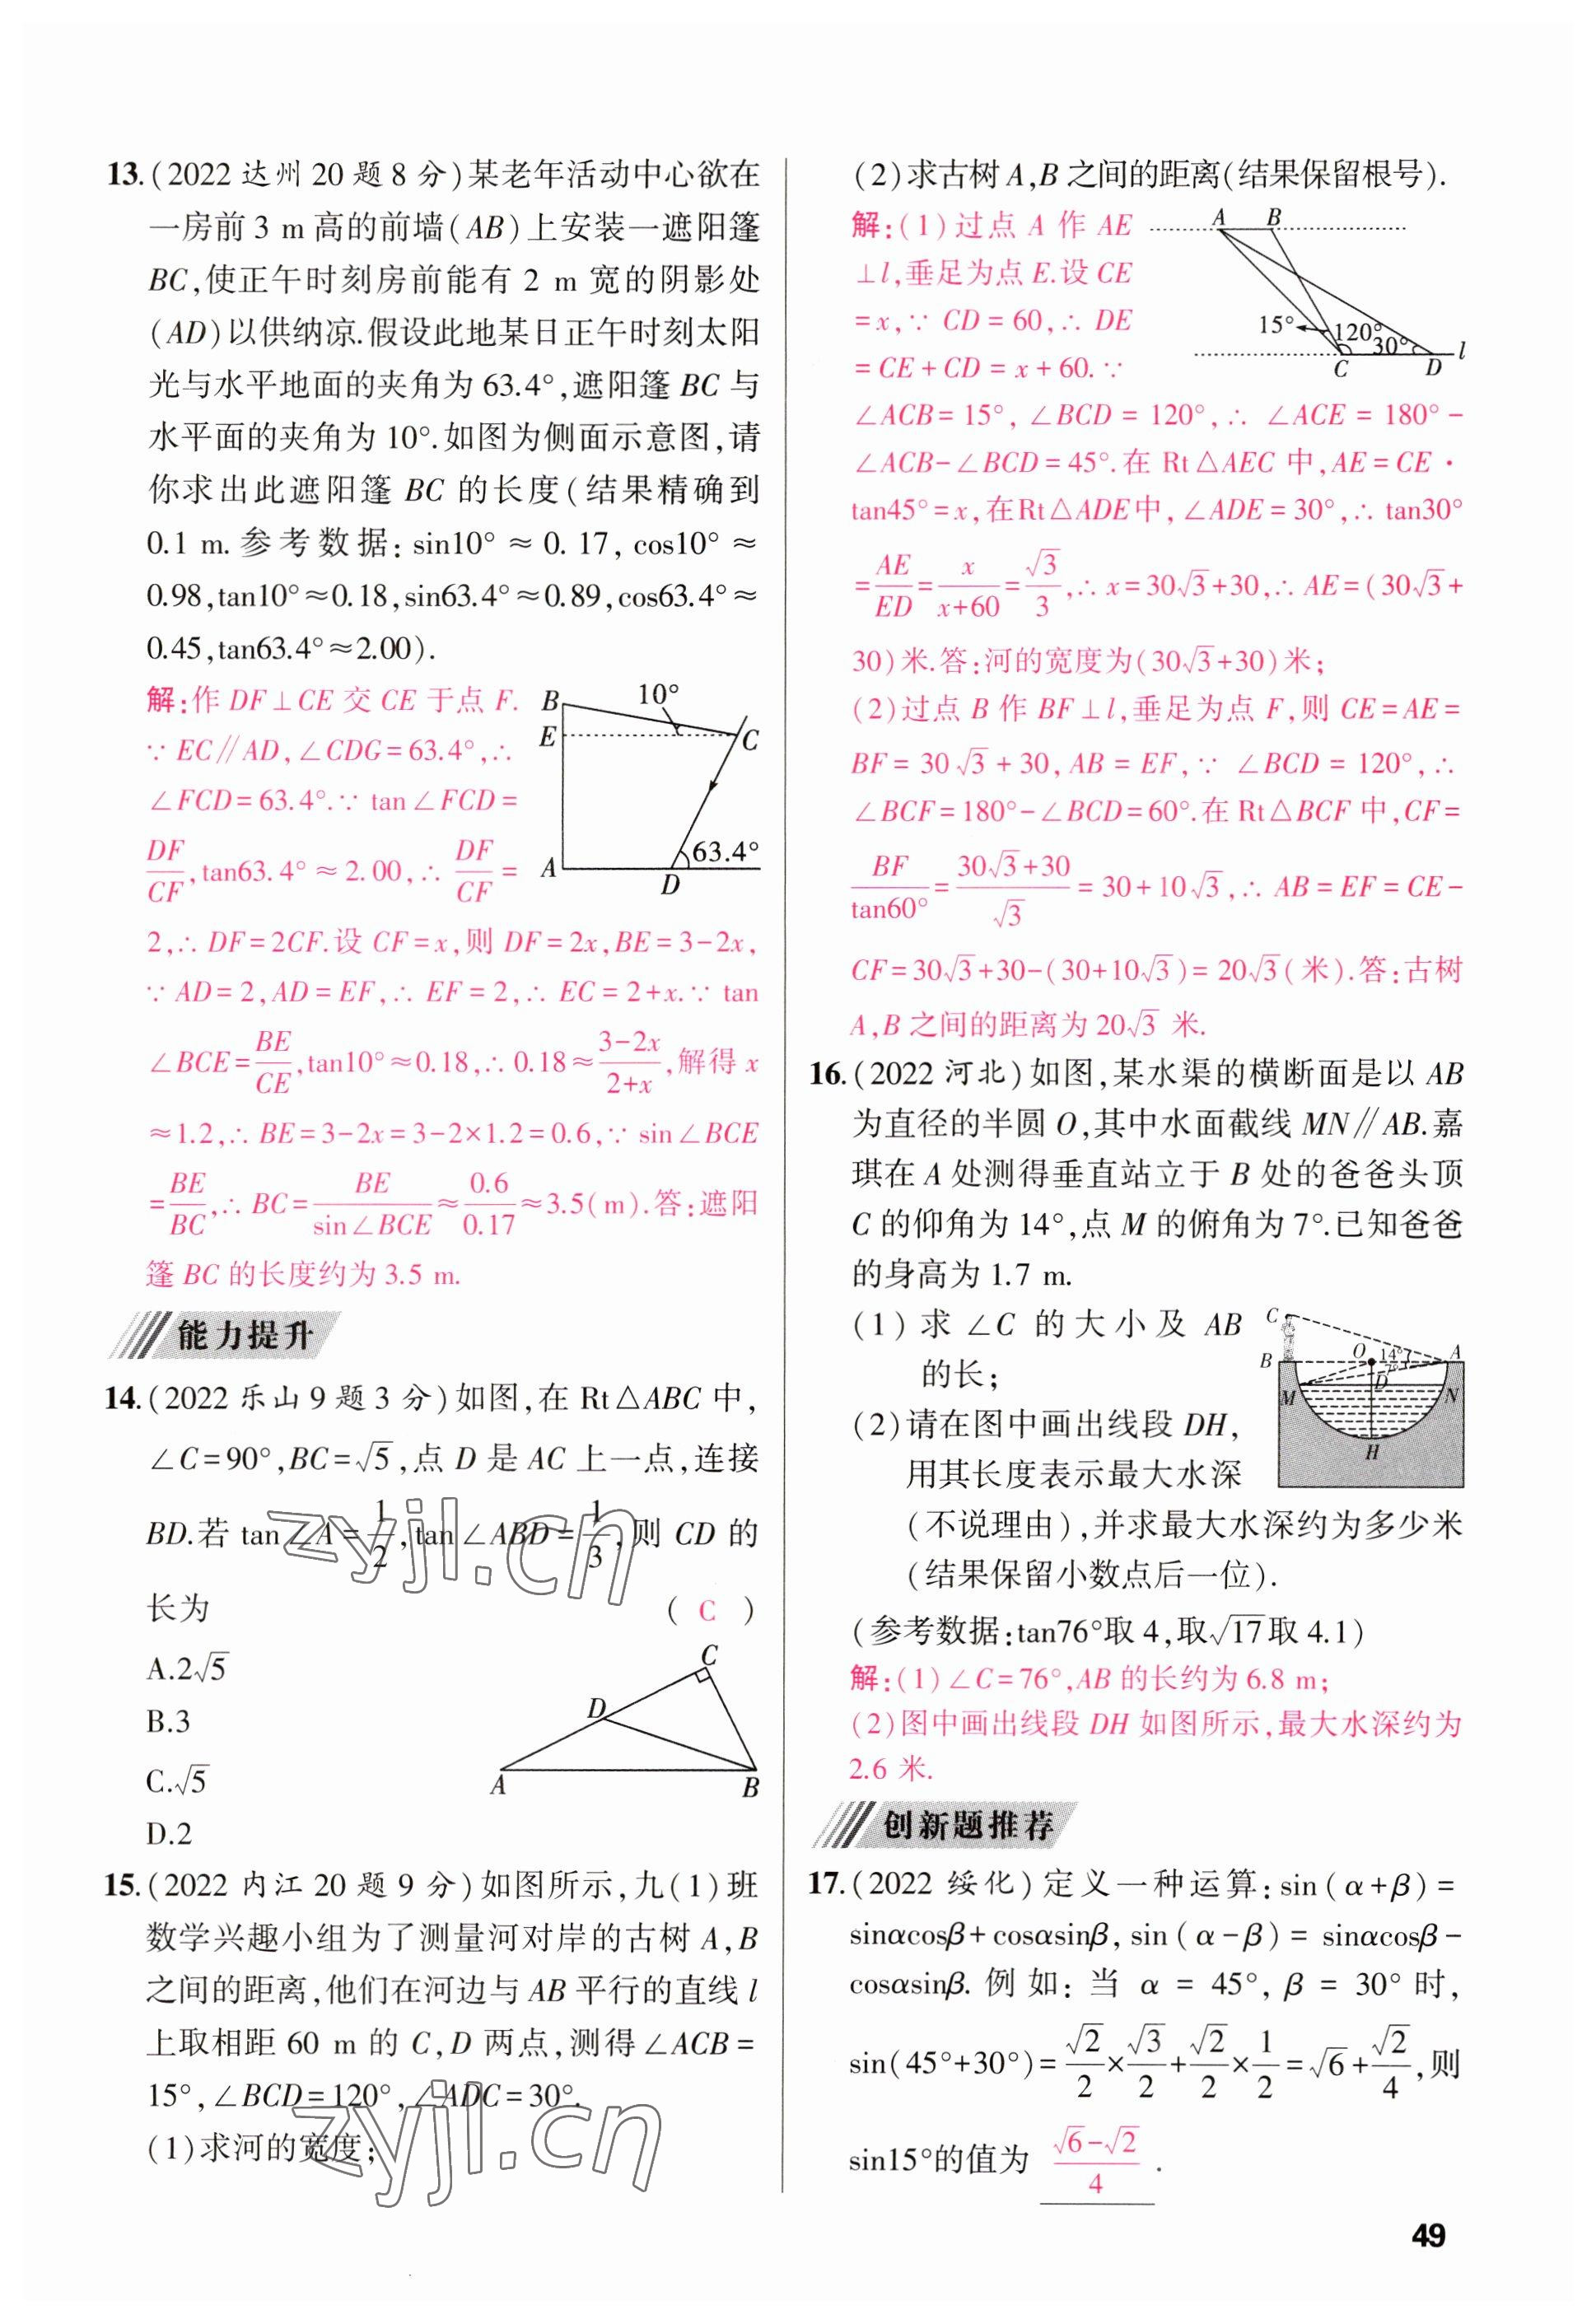 13.(2022 达州 20 题 8 分)某老年活动中心欲在
一房前 3 m 高的前墙(AB)上安装一遮阳篷
BC,使正午时刻房前能有 2 m 宽的阴影处
(AD)以供纳凉.假设此地某日正午时刻太阳
光与水平地面的夹角为 63.4°,遮阳篷 BC 与
水平面的夹角为 10°.如图为侧面示意图,请
你求出此遮阳篷 BC 的长度(结果精确到
0.1 m.参考数据:sin10°≈0.17,cos10°≈
0.98,tan10°≈0.18,sin63.4°≈0.89,cos63.4°≈
0.45,tan63.4°≈2.00).
解:作 DF⊥CE 交 CE 于点 F.
∵ EC∥AD,∠CDG=63.4°,∴
∠FCD=63.4°.∵ tan∠FCD=
DF/CF,tan63.4°≈2.00,∴ DF/CF=
B 10°
E C
A D 63.4°
2,∴ DF=2CF.设 CF=x,则 DF=2x,BE=3-2x,
∵ AD=2,AD=EF,∴ EF=2,∴ EC=2+x.∵ tan
∠BCE=BE/CE,tan10°≈0.18,∴ 0.18≈(3-2x)/(2+x),解得 x
≈1.2,∴ BE=3-2x=3-2×1.2=0.6,∵ sin∠BCE
=BE/BC,∴ BC=BE/sin∠BCE≈0.6/0.17≈3.5(m).答:遮阳
篷 BC 的长度约为 3.5 m.
能力提升
14.(2022 乐山 9 题 3 分)如图,在 Rt△ABC 中,
∠C=90°,BC=√5,点 D 是 AC 上一点,连接
BD.若 tan∠A=1/2,tan∠ABD=1/3,则 CD 的
长为 ( C )
A.2√5
B.3
C.√5
D.2
C
D
A B
15.(2022 内江 20 题 9 分)如图所示,九(1)班
数学兴趣小组为了测量河对岸的古树 A,B
之间的距离,他们在河边与 AB 平行的直线 l
上取相距 60 m 的 C,D 两点,测得∠ACB=
15°,∠BCD=120°,∠ADC=30°.
(1)求河的宽度;
(2)求古树 A,B 之间的距离(结果保留根号).
解:(1)过点 A 作 AE
⊥l,垂足为点 E.设 CE
=x,∵ CD=60,∴ DE
=CE+CD=x+60.∵
A B
15° 120° 30° l
C D
∠ACB=15°,∠BCD=120°,∴ ∠ACE=180°-
∠ACB-∠BCD=45°.在 Rt△AEC 中,AE=CE·
tan45°=x,在Rt△ADE中,∠ADE=30°,∴ tan30°
=AE/ED=x/(x+60)=√3/3,∴ x=30√3+30,∴ AE=(30√3+
30)米.答:河的宽度为(30√3+30)米;
(2)过点 B 作 BF⊥l,垂足为点 F,则 CE=AE=
BF=30√3+30,AB=EF,∵ ∠BCD=120°,∴
∠BCF=180°-∠BCD=60°.在Rt△BCF 中,CF=
BF/tan60°=(30√3+30)/√3=30+10√3,∴ AB=EF=CE-
CF=30√3+30-(30+10√3)=20√3(米).答:古树
A,B 之间的距离为 20√3 米.
16.(2022 河北)如图,某水渠的横断面是以 AB
为直径的半圆 O,其中水面截线 MN∥AB.嘉
琪在 A 处测得垂直站立于 B 处的爸爸头顶
C 的仰角为 14°,点 M 的俯角为 7°.已知爸爸
的身高为 1.7 m.
(1)求∠C 的大小及 AB
的长;
(2)请在图中画出线段 DH,
用其长度表示最大水深
(不说理由),并求最大水深约为多少米
(结果保留小数点后一位).
C
B O 14° A
7°
M D N
H
(参考数据:tan76°取 4,取√17取 4.1)
解:(1)∠C=76°,AB 的长约为 6.8 m;
(2)图中画出线段 DH 如图所示,最大水深约为
2.6 米.
创新题推荐
17.(2022 绥化)定义一种运算:sin(α+β)=
sinαcosβ+cosαsinβ,sin(α-β)=sinαcosβ-
cosαsinβ.例如:当 α=45°,β=30°时,
sin(45°+30°)=√2/2×√3/2+√2/2×1/2=√6+√2/4,则
sin15°的值为 (√6-√2)/4 .
49
zyjl.cn
zyjl.cn